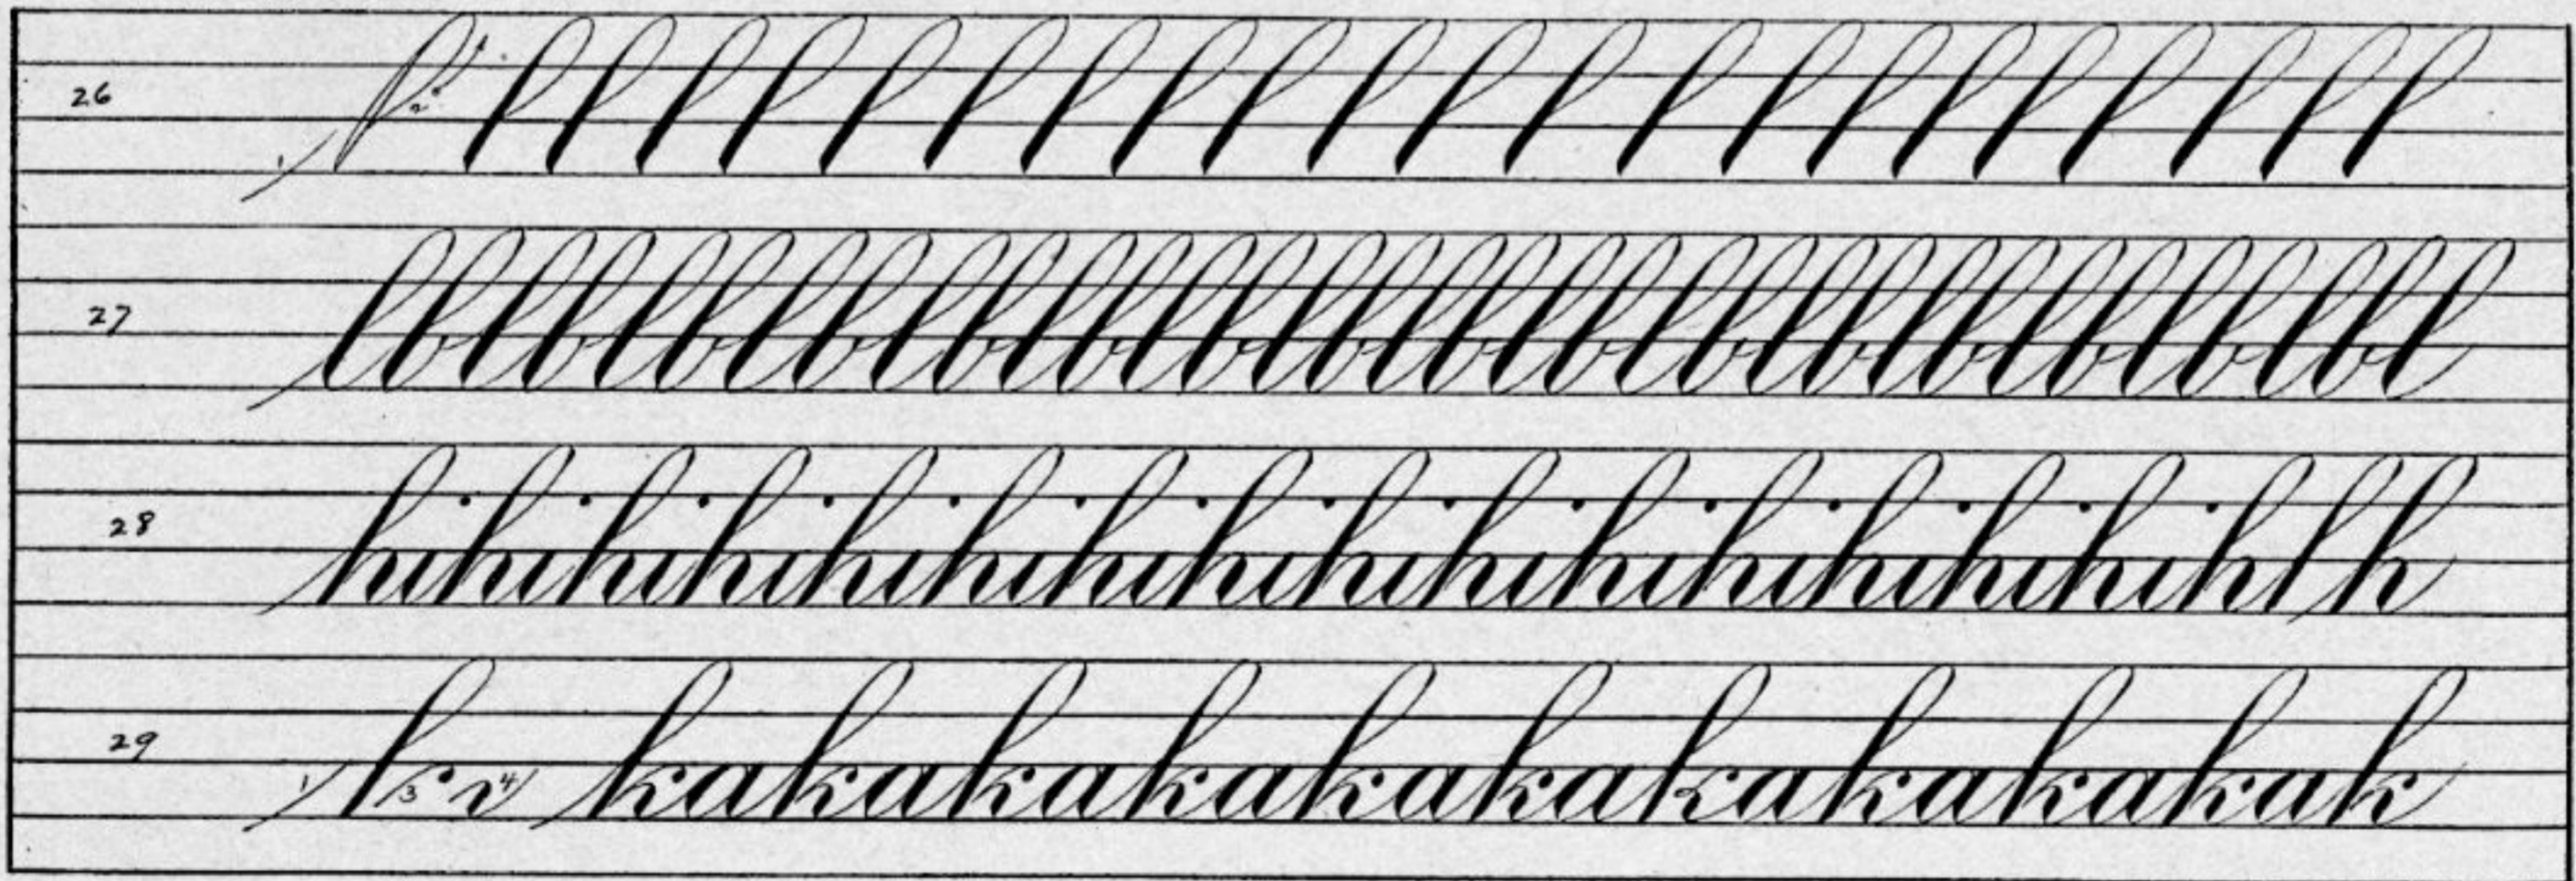 26 l l l l l l l l l l l l l l l l l l l l l
27 lblblblblblblblblblblblblblblblbl
28 hihihihihihihihihihihihihihihihl h
29 kakakakakakakakakakak